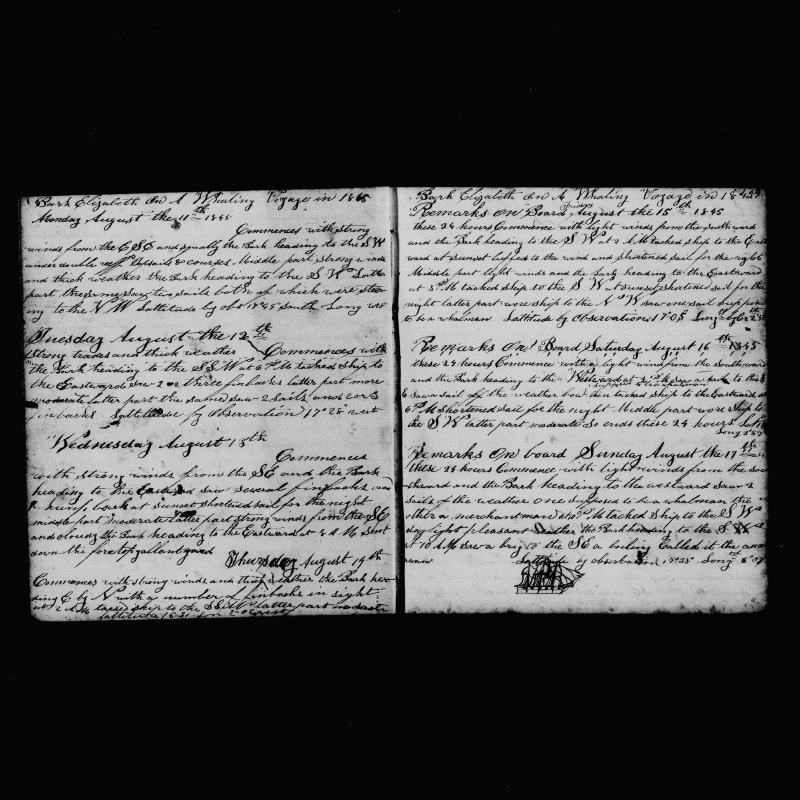 Bark Elizabeth On A Whaling Voyage in 1845
Monday August the 11th 1845
Commences with strong
winds from the ESE and squally the Bark heading to the SW
under double reef topsails & courses. Middle part strong winds
and thick weather the Bark heading to the S W Latter
part the same saw two sails both of which were stee
ing to the N W Lattitude by obs South Long
Tuesday August the 12th
Strong trades and thick weather Commences with
the Bark heading to the SSW at 6 PM tacked ship to
the Eastward saw 2 or three finbacks latter part more
moderate latter part the same saw 2 Sails and 2 or 3
finbacks Lattitude by Observation 17"28 west
Wednesday August 13th
Commences
with strong winds from the SE and the Bark
heading to the Eastward saw several finbacks and
hump back at sunset shortened sail for the night
middle part moderate latter part strong winds from the SE
and cloudy the Bark heading to the Eastward at 8 A M Sent
down the foretopgallant yard
Thursday August 14th
Commences with strong winds and thick weather the Bark hea
ding E by N with a number of finbacks in sight
at 2 A M ship to the latter part moderate
Lattitude
Bark Elizabeth On A Whaling Voyage in 1845
Remarks On Board August the 15th 1845
these 24 hours Commence with light winds from the Southward
and the Bark heading to the S W at 2 A M tacked ship to the East
ward at Sunset luffed to the wind and shortened sail for the night
Middle part light winds and the Bark heading to the Eastward
at 3 PM tacked ship to the S W at sunset shortened sail for the
night latter part wore ship to the N W saw one sail supposed
to be a whalman Lattitude by Observation 17"08 Long
Remarks On Board Saturday August 16th 1845
these 24 hours Commence with a light wind from the Southward
and the Bark heading to the Westward at saw a sail to the S
Saw a sail off the weather bow then tacked ship to the Eastward at
6 PM Shortened sail for the night. Middle part wore Ship to
the S W latter part moderate So ends these 24 hours
Long
Remarks On board Sunday August the 17th
these 24 hours Commence with light winds from the Sou
thward and the Bark heading to the westward saw 2
Sails of the weather one supposed to be a whalman the
other a merchantman at PM tacked Ship to the S W
daylight pleasant weather the Bark heading to the S W
at 10 AM saw a brig to the SE a boiling Called it the
Lattitude by observation Long